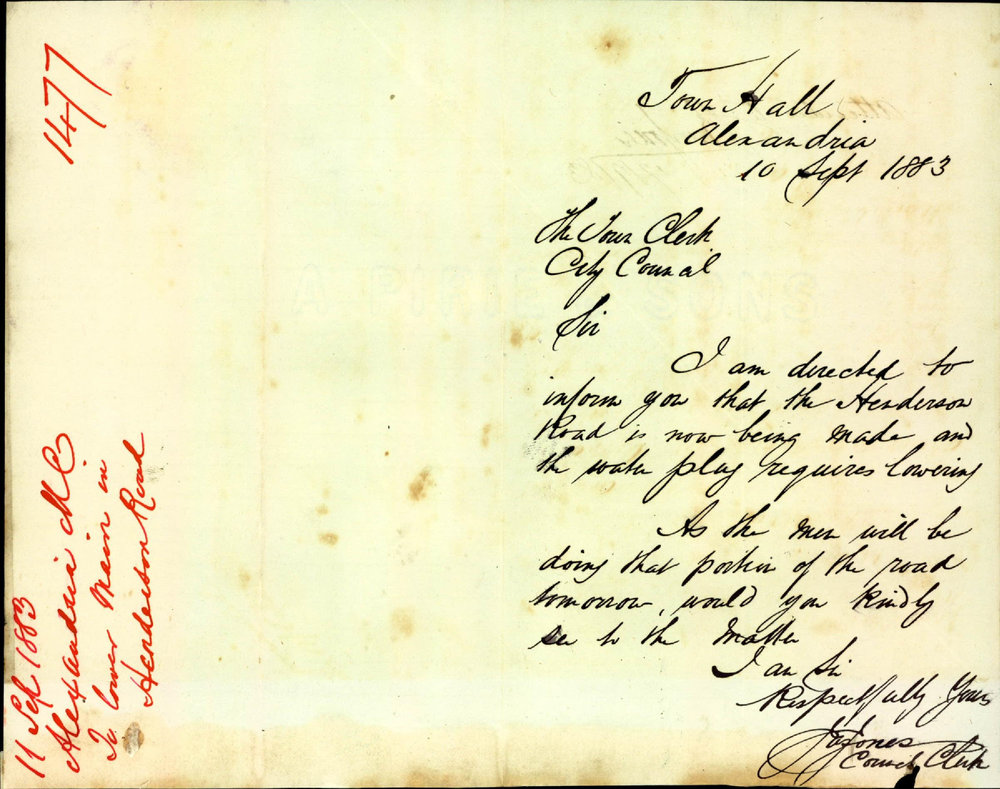 1477
11 Sep 1883
Alexandria M C
To lower Main in
Henderson Road
Town Hall
Alexandria
10 Sept 1883
The Town Clerk
City Council
Sir
I am directed to
inform you that the Henderson
Road is now being made and
the water plug requires lowering
As the men will be
doing that portion of the road
tomorrow, would you kindly
see to the matter
I am Sir
Respectfully Yours
Jones
Council Clerk